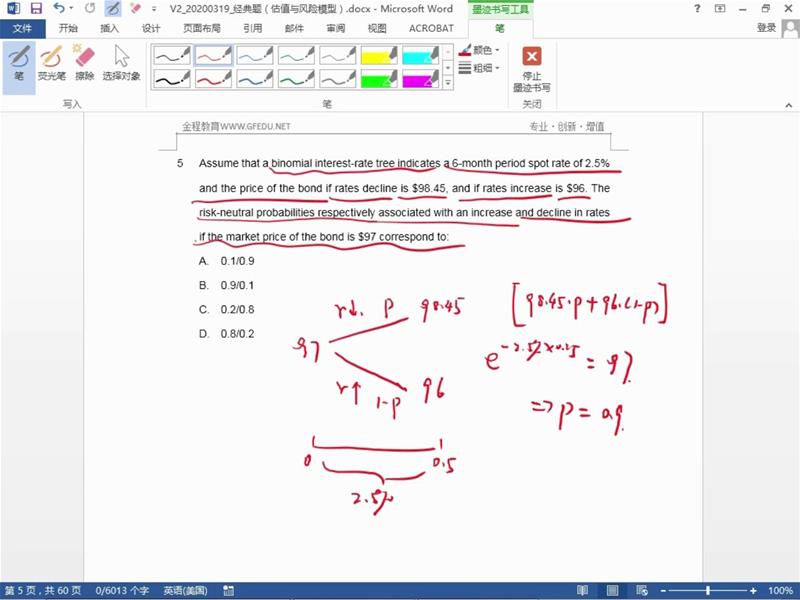 V2_20200319_经典题（估值与风险模型）.docx - Microsoft Word
墨迹书写工具
文件
开始
插入
设计
页面布局
引用
邮件
审阅
视图
ACROBAT
笔
登录
笔
荧光笔
擦除
选择对象
颜色
粗细
停止
墨迹书写
写入
笔
关闭
金程教育WWW.GFEDU.NET
专业·创新·增值
5 Assume that a binomial interest-rate tree indicates a 6-month period spot rate of 2.5%
and the price of the bond if rates decline is $98.45, and if rates increase is $96. The
risk-neutral probabilities respectively associated with an increase and decline in rates
if the market price of the bond is $97 correspond to:
A. 0.1/0.9
B. 0.9/0.1
C. 0.2/0.8
D. 0.8/0.2
r↓. P 98.45
97
r↑ 1-P 96
0 0.5
2.5%
[98.45·P+96·(1-P)]
= 97
⇒ P = 0.9
第 5 页，共 60 页
0/6013 个字
英语(美国)
100%